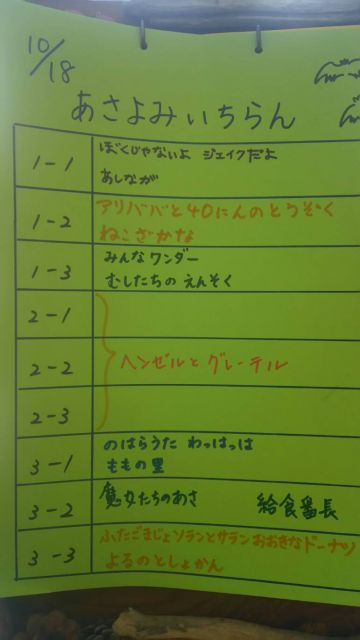 10/18
あさよみいちらん
1-1
ぼくじゃないよ ジェイクだよ
あしながが
1-2
アリババと40にんのとうぞく
ねこざかな
1-3
みんなワンダー
むしたちの えんそく
2-1
2-2
ヘンゼルと グレーテル
2-3
3-1
のはらうた わっはっは
ももの里
3-2
魔女たちのあさ 給食番長
3-3
ふたごまじょソランとサラン おおきなドーナッツ
よるのとしょかん